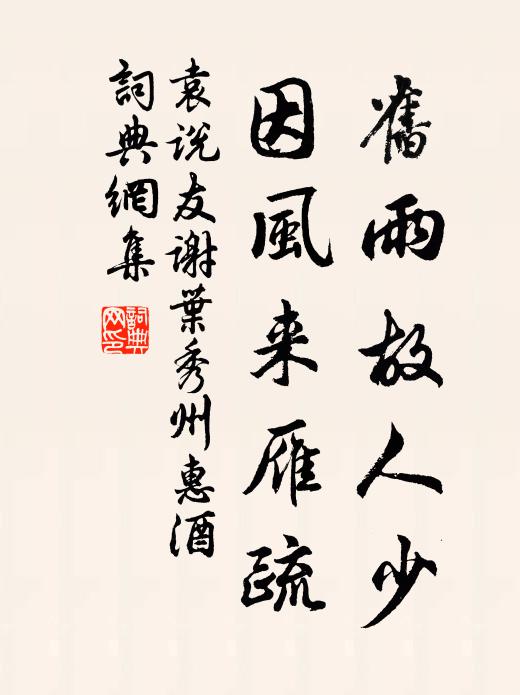 舊雨故人少
因風来雁疏
袁说友谢葉秀州惠酒
詞典網集
詞典网印